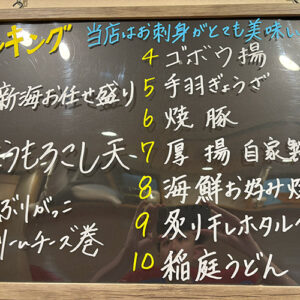 ンキング
当店はお刺身がとても美味し
新海お任せ盛り
うもろこし天
ぶりがっこ
リームチーズ巻
4 ゴボウ揚
5 手羽ぎょうざ
6 焼豚
7 厚揚自家製
8 海鮮お好み焼
9 炙り干しホタル
10 稲庭うどん